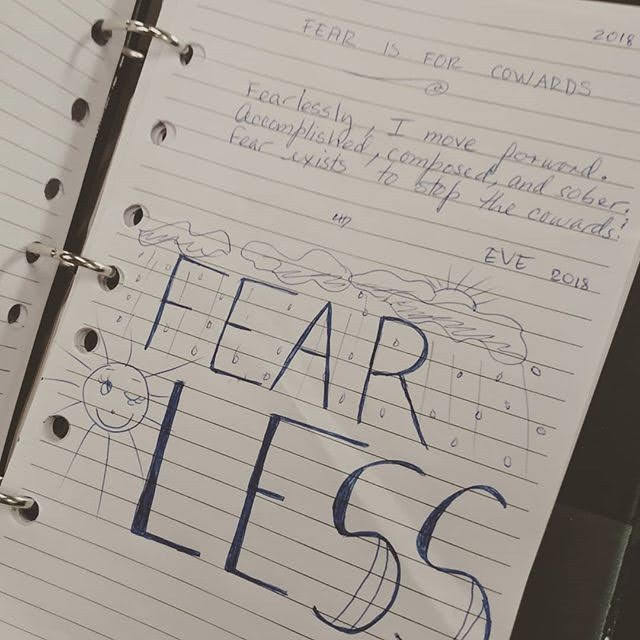 2018
FEAR IS FOR COWARDS
Fearlessly, I move forward.
Accomplished, composed, and sober.
Fear exists to stop the cowards!
EVE 2018
FEAR
LESS